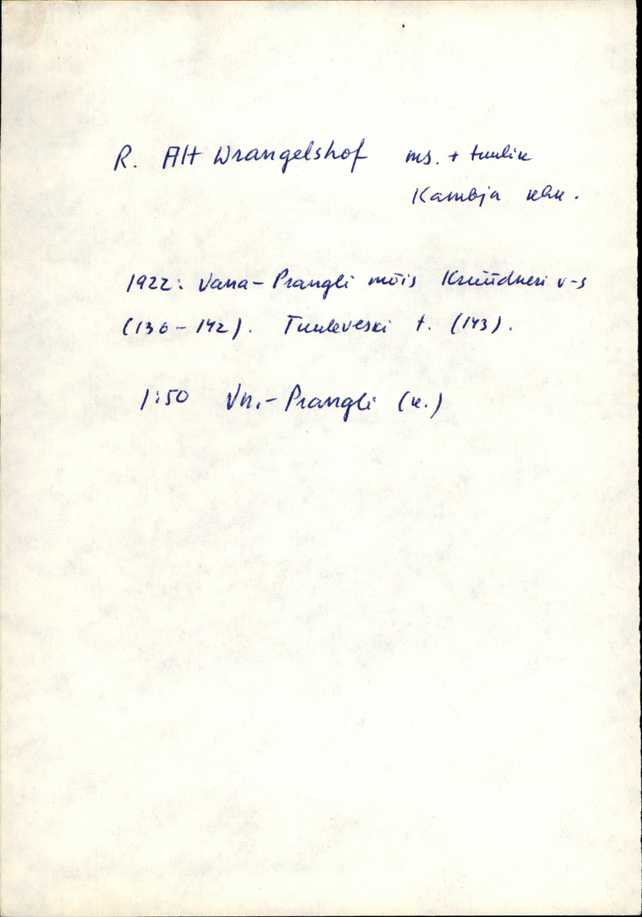 R. Alt Wrangelshof ms. + tuulik
Kambja khk.
1922: Vana-Prangli mõis Krüüdneri v-s
(136-142). Tuuleveski t. (143).
1:50 Vn.-Prangli (k.)